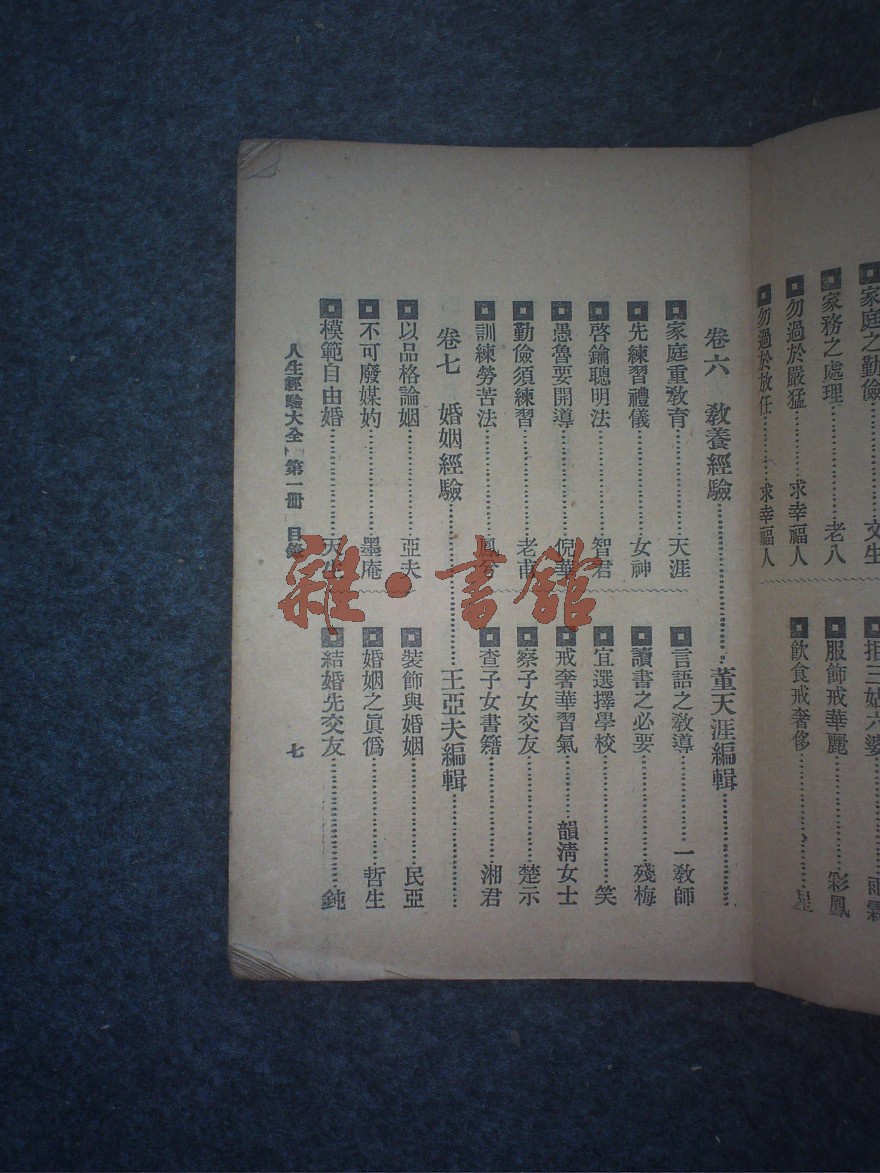 家庭之勤儉……文生
家務之處理……老八
勿過於嚴猛……求幸福人
勿過於放任……求幸福人
三姑六婆……
服飾戒華麗……彩鳳
飲食戒奢侈……星
卷六 教養經驗……董天涯編輯……
家庭重教育……天涯
先練習禮儀……女神
啓鑰聰明法……智君
愚魯要開導……倪華
勤儉須練習……老圃
訓練勞苦法……鳳兮
言語之教導……一教師
讀書之必要……殘梅
宜選擇學校……笑
戒奢華習氣……韻清女士
察子女交友……楚示
查子女書籍……湘君
卷七 婚姻經驗……王亞夫編輯……
以品格論姻……亞夫
不可廢媒妁……墨庵
模範自由婚……天生
裝飾與婚姻……民亞
婚姻之眞僞……哲生
結婚先交友……鈍
人生經驗大全 第一冊 目錄
七
雜·書館